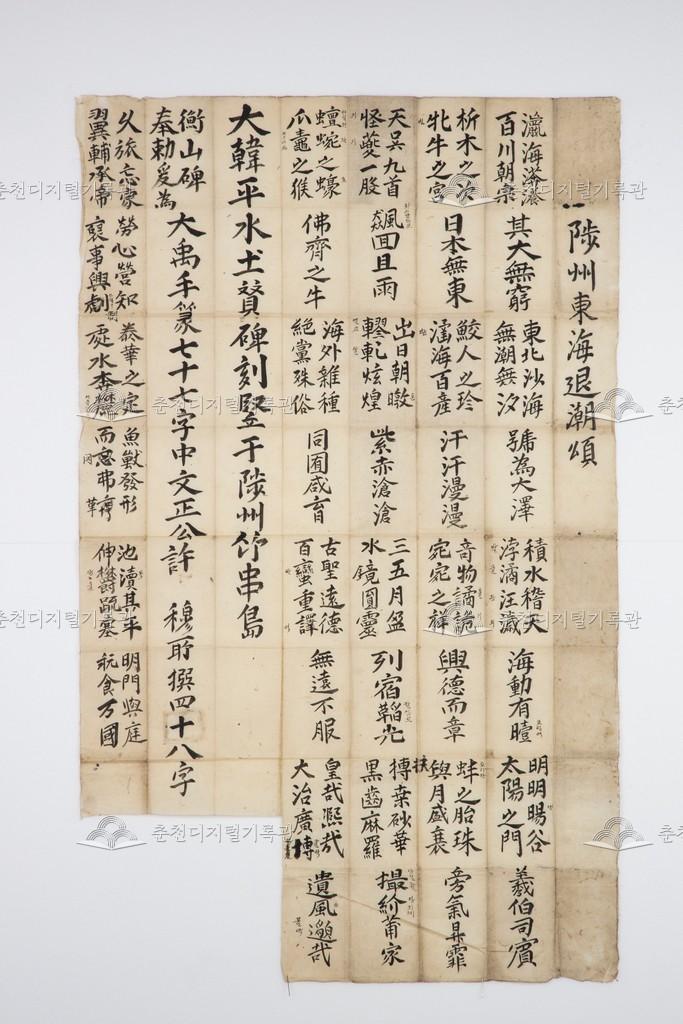 陟州東海退潮頌
瀛海漭瀁 百川朝宗 其大無窮 東北沙海 無潮無汐 號為大澤 積水稽天 浡潏汪濊 海動有曀 明明暘谷 太陽之門 羲伯司賓
析木之次 牝牛之宮 日本無東 鮫人之珍 涵海百産 汗汗漫漫 奇物譎詭 宛宛之祥 興德而章 蚌之胎珠 與月盛衰 旁氣昇霏
天吳九首 怪夔一股 颷回且雨 出日朝暾 轇軋炫煌 紫赤滄滄 三五月盈 水鏡圓靈 列宿韜光 扶 榑桑砂華 黑齒麻羅 撮紒莆家
蟺蜿之蠔 爪鼃之猴 佛齊之牛 海外雜種 絶黨殊俗 同囿咸育 古聖遠德 百蠻重譯 無遠不服 皇哉熙哉 大治廣博 遺風邈哉
大韓平水土贊碑刻竪于陟州竹串島
衡山碑 奉勅爰為 大禹手篆七十七字中文正公許 穆所撰四十八字
久旅忘家 翼輔承帝 勞心營知 裒事興制 泰華之定 處水奔麓 魚獸發形 而罔弗亨 池瀆其平 伸鬱疏塞 明門與庭 食万國
춘천디지털기록관